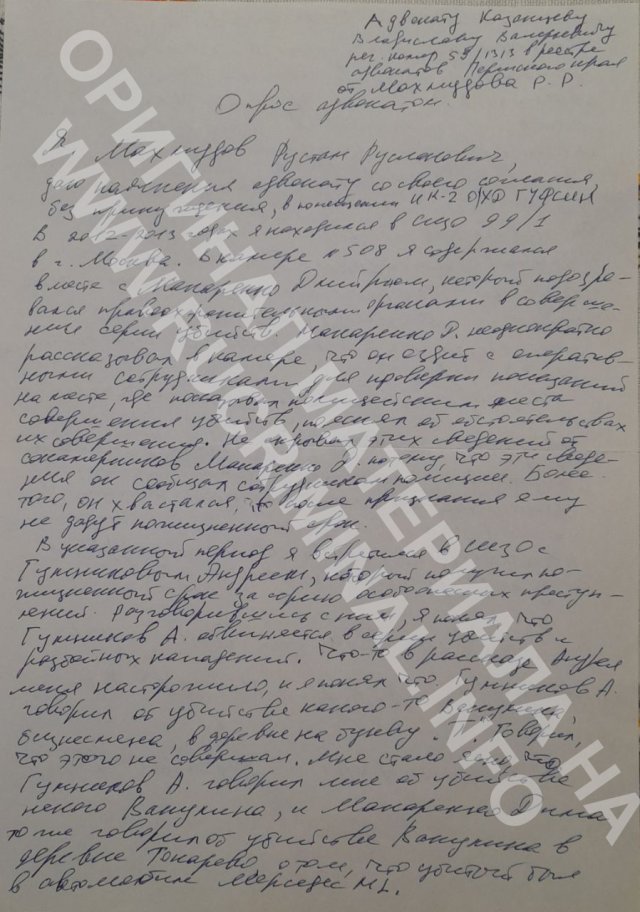 Адвокату Казанцеву
Владиславу Валерьевичу
рег. номер 59/1313 в реестре
адвокатов Пермского края
от Махмудова Р. Р.
Опрос адвокатом.
Я Махмудов Рустам Русланович,
даю пояснения адвокату со своего согласия,
без принуждения, в помещении ИК-2 ОХД ГУФСИН
В 2012-2013 годах я находился в СИЗО 99/1
в г. Москва. В камере № 508 я содержался
вместе с Макаренко Дмитрием, который подозре-
вался правоохранительными органами в соверше-
ние серии убийств. Макаренко Д. неоднократно
рассказывал в камере, что он ездит с оператив-
ными сотрудниками для проверки показаний
на месте, где показывал полицейским места
совершения убийств, пояснял об обстоятельствах
их совершения. Не скрывал этих сведений от
сокамерников Макаренко Д. потому, что эти сведе-
ния он сообщал сотрудникам полиции. Более
того, он хвастался, что после признания ему
не дадут пожизненный срок.
В указанный период я встретился в СИЗО с
Гумниковым Андреем, который получил по-
жизненный срок за серию особо тяжких преступ-
лений. Разговорившись с ним, я понял, что
Гумников А. обвиняется в серии убийств и
разбойных нападений. Что-то в рассказе Андрея
меня насторожило, и я понял что Гумников А.
говорил об убийстве какого-то Вакулина,
бизнесмена, в деревне на букву Говорил,
что этого не совершал. Мне стало ясно, что
Гумников А. говорил мне об убийстве
некого Вакулина, и Макаренко Дима
тоже говорил об убийстве Вакулина в
деревне Токарево, о том, что убитый был
в автомобиле Мерседес ML.
ОРИГИНАЛ МАТЕРИАЛА НА
WWW.RUCRIMINAL.INFO